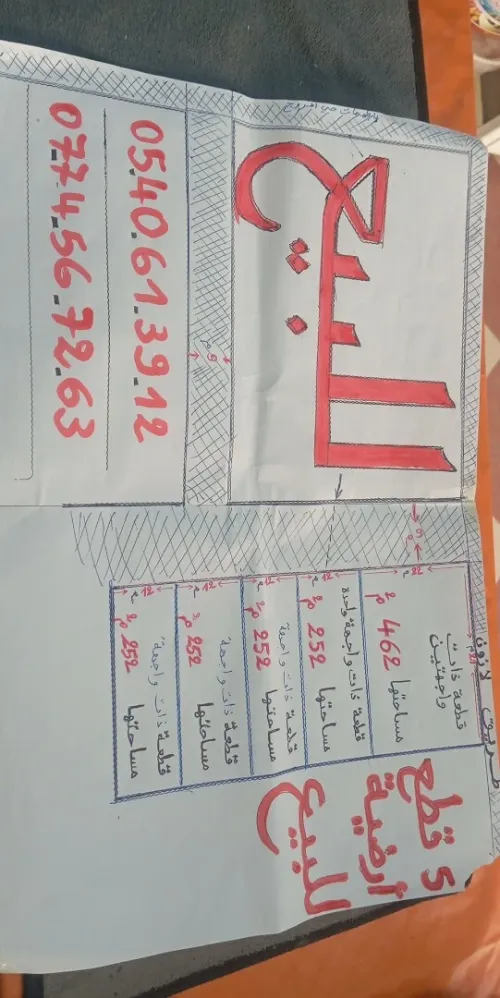 5 قطع
أرضية
للبيع
للبيع
05.40.61.39.12
07.74.56.72.63
طريق
قطعة ذات
واجهتين
مساحتها 462 م2
22 م
قطعة ذات واجهة واحدة
مساحتها 252 م2
12 م
قطعة ذات واجهة
مساحتها 252 م2
12 م
قطعة ذات واجهة
مساحتها 252 م2
12 م
قطعة ذات واجهة
مساحتها 252 م2
12 م
9 م